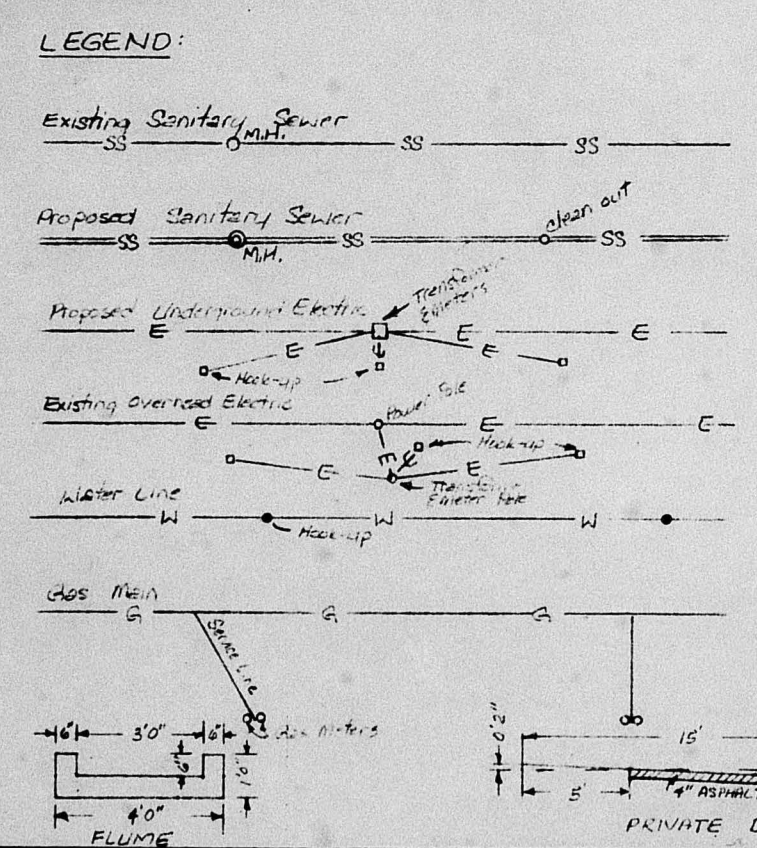 LEGEND:
Existing Sanitary Sewer
SS M.H. SS SS
Proposed Sanitary Sewer
clean out
SS M.H. SS SS
Transformer
& meters
Proposed Underground Electric
E E E
E E E
Hook-up
Existing Overread Electric
Power Pole
E E E
Hook-up
E E E E
Transformer
& meter Pole
Water Line
W W W
Hook-up
Gas Main
G G G
Service Line
Gas Meters
6" 3'0" 6"
6" 1'0"
4'0"
FLUME
0'2" 15'
5' 4" ASPHAL
PRIVATE